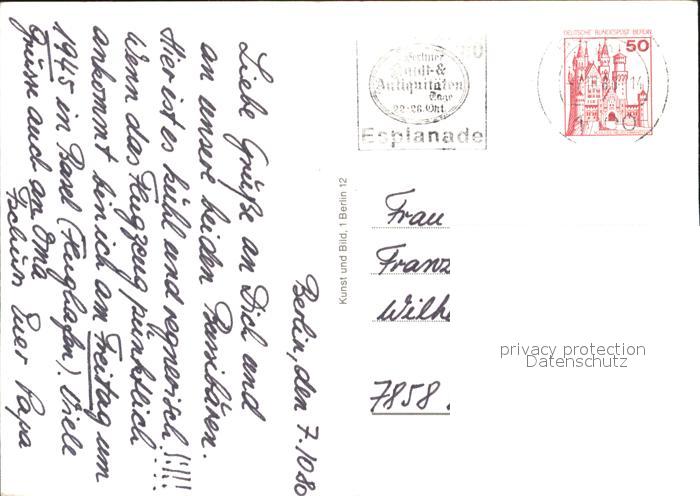 Berlin, den 7.10.80
Liebe Grüße an Dich und
an unsere beiden
Hier ist es kühl und regnerisch!!!!!
Wenn das Flugzeug pünktlich
ankommt bin ich am Freitag um
1945 in Basel (Flughafen). Viele
Grüsse auch an Oma
Tschüß Euer Papa
Kunst und Bild, 1 Berlin 12
Berliner
Kunst- &
Antiquitäten
Tage
22-26. Okt.
Esplanade
DEUTSCHE BUNDESPOST BERLIN
50
Frau
Franz
Wilh
7858
privacy protection
Datenschutz